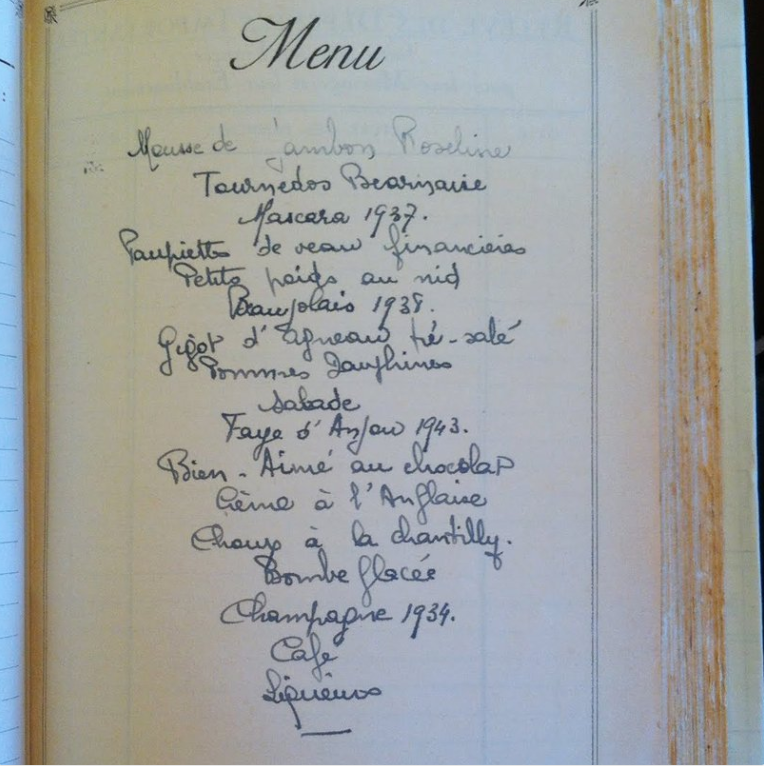 Menu
Mousse de Jambon Roseline
Tournedos Bearnaise
Mascara 1937.
Paupiettes de veau financières
Petits poids au nid
Beaujolais 1938.
Gigot d'Agneau pré-salé
Pommes Dauphines
Salade
Faye d'Anjou 1943.
Bien-Aimé au chocolat
Crème à l'Anglaise
Choux à la chantilly.
Bombe glacée
Champagne 1934.
Café
Liqueurs